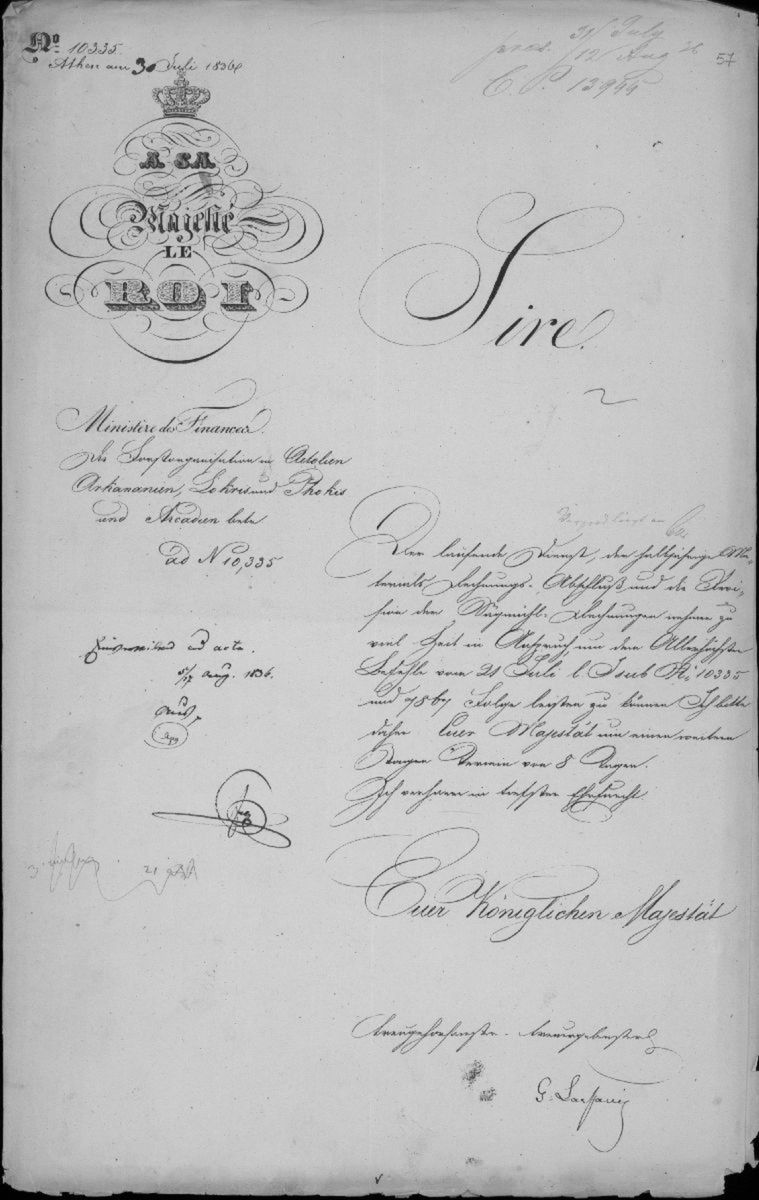 No 10335.
Athen am 30 Juli 1836
pres. 31 July
/12 Aug 36
C. P. 13955
57
A SA
Majesté
LE
ROI
Sire.
Ministère des Finances.
Die Forstorganisation in Aetolien
Arkananien, Lokris und Phokis
und Arcadien betr.
ad N 10,335
ad acta.
5/17 Aug. 1836.
Der laufende Dienst, der halbjährige Ma-
terials Rechnungs-Abschluß und die Revi-
sion der Rechnungen nehmen zu
viel Zeit in Anspruch, um dem Allerhöchsten
Befehle vom 21 Juli l. J. sub N. 10335
und Folge leisten zu können. Ich bitte
daher Euer Majestät um einen weitern
Termin von 8 Tagen.
Ich verharre in tiefster Ehrfurcht
Euer Königlichen Majestät
treugehorsamster
G.